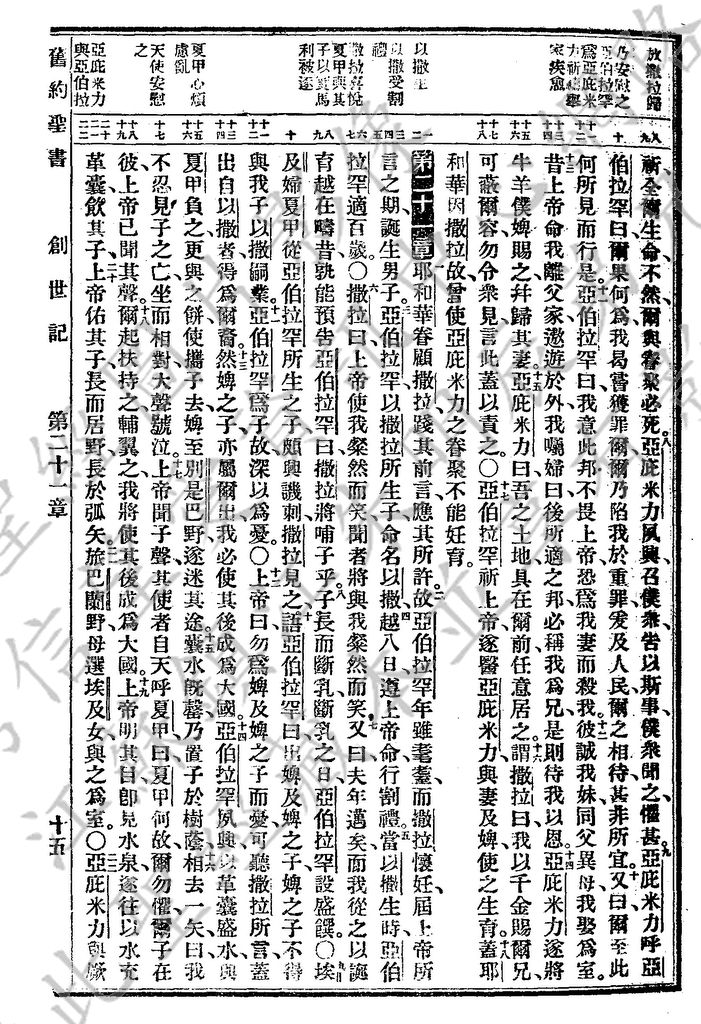 放撒拉歸
乃安慰之
亞伯拉罕
爲亞庇米
力祈禱舉
家疾愈
以撒生
以撒受割
禮
撒拉喜悅
夏甲與其
子以野馬
利被逐
夏甲心煩
慮亂
天使安慰
之
亞庇米力
與亞伯拉
祈全爾生命不然爾與眷聚必死亞庇米力夙興召僕衆告以斯事僕衆聞之懼甚亞庇米力呼亞
伯拉罕曰爾果何爲我曷嘗獲罪爾爾乃陷我於重罪爰及人民爾之相待甚非所宜又曰爾至此
何所見而行是亞伯拉罕曰我意此邦不畏上帝恐爲我妻而殺我彼誠我妹同父異母我娶爲室
昔上帝命我離父家遨遊於外我囑婦曰後所適之邦必稱我爲兄是則待我以恩亞庇米力遂將
牛羊僕婢賜之幷歸其妻亞庇米力曰吾之土地具在爾前任意居之謂撒拉曰我以千金賜爾兄
可蔽爾容勿令衆見言此蓋以責之〇亞伯拉罕祈上帝遂醫亞庇米力與妻及婢使之生育蓋耶
和華因撒拉故曾使亞庇米力之眷聚不能妊育
第二十一章耶和華眷顧撒拉踐其前言應其所許故亞伯拉罕年雖耄耋而撒拉懷妊屆上帝所
言之期誕生男子亞伯拉罕以撒拉所生子命名以撒越八日遵上帝命行割禮當以撒生時亞伯
拉罕適百歲〇撒拉曰上帝使我粲然而笑聞者將與我粲然而笑又曰夫年邁矣而我從之以誕
育越在疇昔孰能預告亞伯拉罕曰撒拉將哺子乎子長而斷乳斷乳之日亞伯拉罕設盛饌〇埃
及婦夏甲從亞伯拉罕所生之子頗興譏刺撒拉見之語亞伯拉罕曰出婢及婢之子婢之子不得
與我子以撒嗣業亞伯拉罕爲子故深以爲憂〇上帝曰勿爲婢及婢之子而憂可聽撒拉所言蓋
出自以撒者得爲爾裔然婢之子亦屬爾出我必使其後成爲大國亞伯拉罕夙興以革囊盛水與
夏甲負之更與之餅使攜子去婢至別是巴野遂迷其途囊水旣罄乃置子於樹蔭相去一矢曰我
不忍見子之亡坐而相對大聲號泣上帝聞子聲其使者自天呼夏甲曰夏甲何故爾勿懼爾子在
彼上帝已聞其聲爾起扶持之輔翼之我將使其後成爲大國上帝明其目卽見水泉遂往以水充
革囊飲其子上帝佑其子長而居野長於弧矢旅巴蘭野母選埃及女與之爲室〇亞庇米力與厥
舊約聖書　創世記　第二十一章　十五